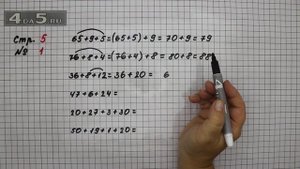 4DA5.RU
Стр. 5
№ 1
65+9+5=(65+5)+9=70+9=79
76+8+4=(76+4)+8=80+8=88
36+8+12=36+20= 6
47+6+24=
20+27+3+30=
50+19+1+20=